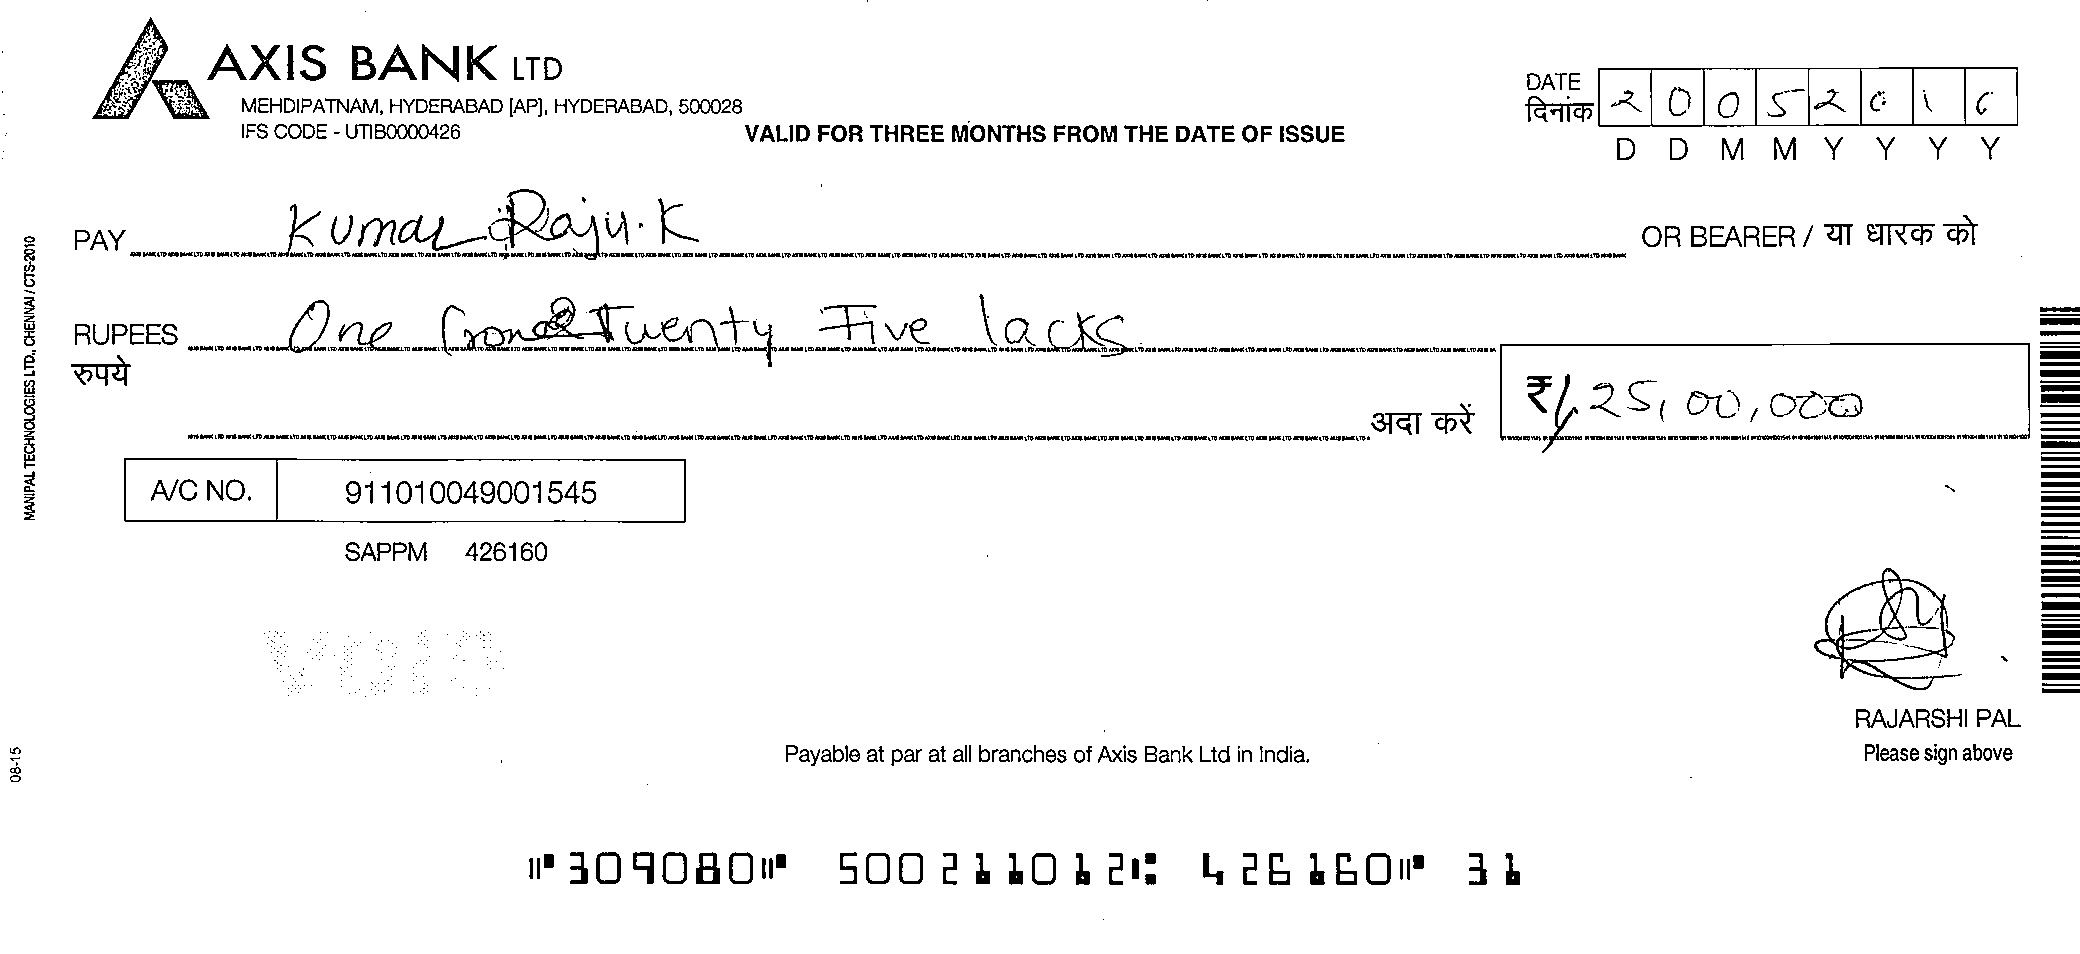 AXIS BANK LTD
MEHDIPATNAM, HYDERABAD [AP], HYDERABAD, 500028
IFS CODE - UTIB0000426
VALID FOR THREE MONTHS FROM THE DATE OF ISSUE
DATE
दिनांक 2 0 0 5 2 0 1 6
D D M M Y Y Y Y
PAY Kumar Raju.K OR BEARER / या धारक को
RUPEES One Twenty Five lacks
रुपये
अदा करें ₹ 1,25,00,000
A/C NO. 911010049001545
SAPPM 426160
VOID
RAJARSHI PAL
Please sign above
Payable at par at all branches of Axis Bank Ltd in India.
⑈309080⑈ 500211012⑆ 426160⑈ 31
MANIPAL TECHNOLOGIES LTD., CHENNAI / CTS-2010
08-15